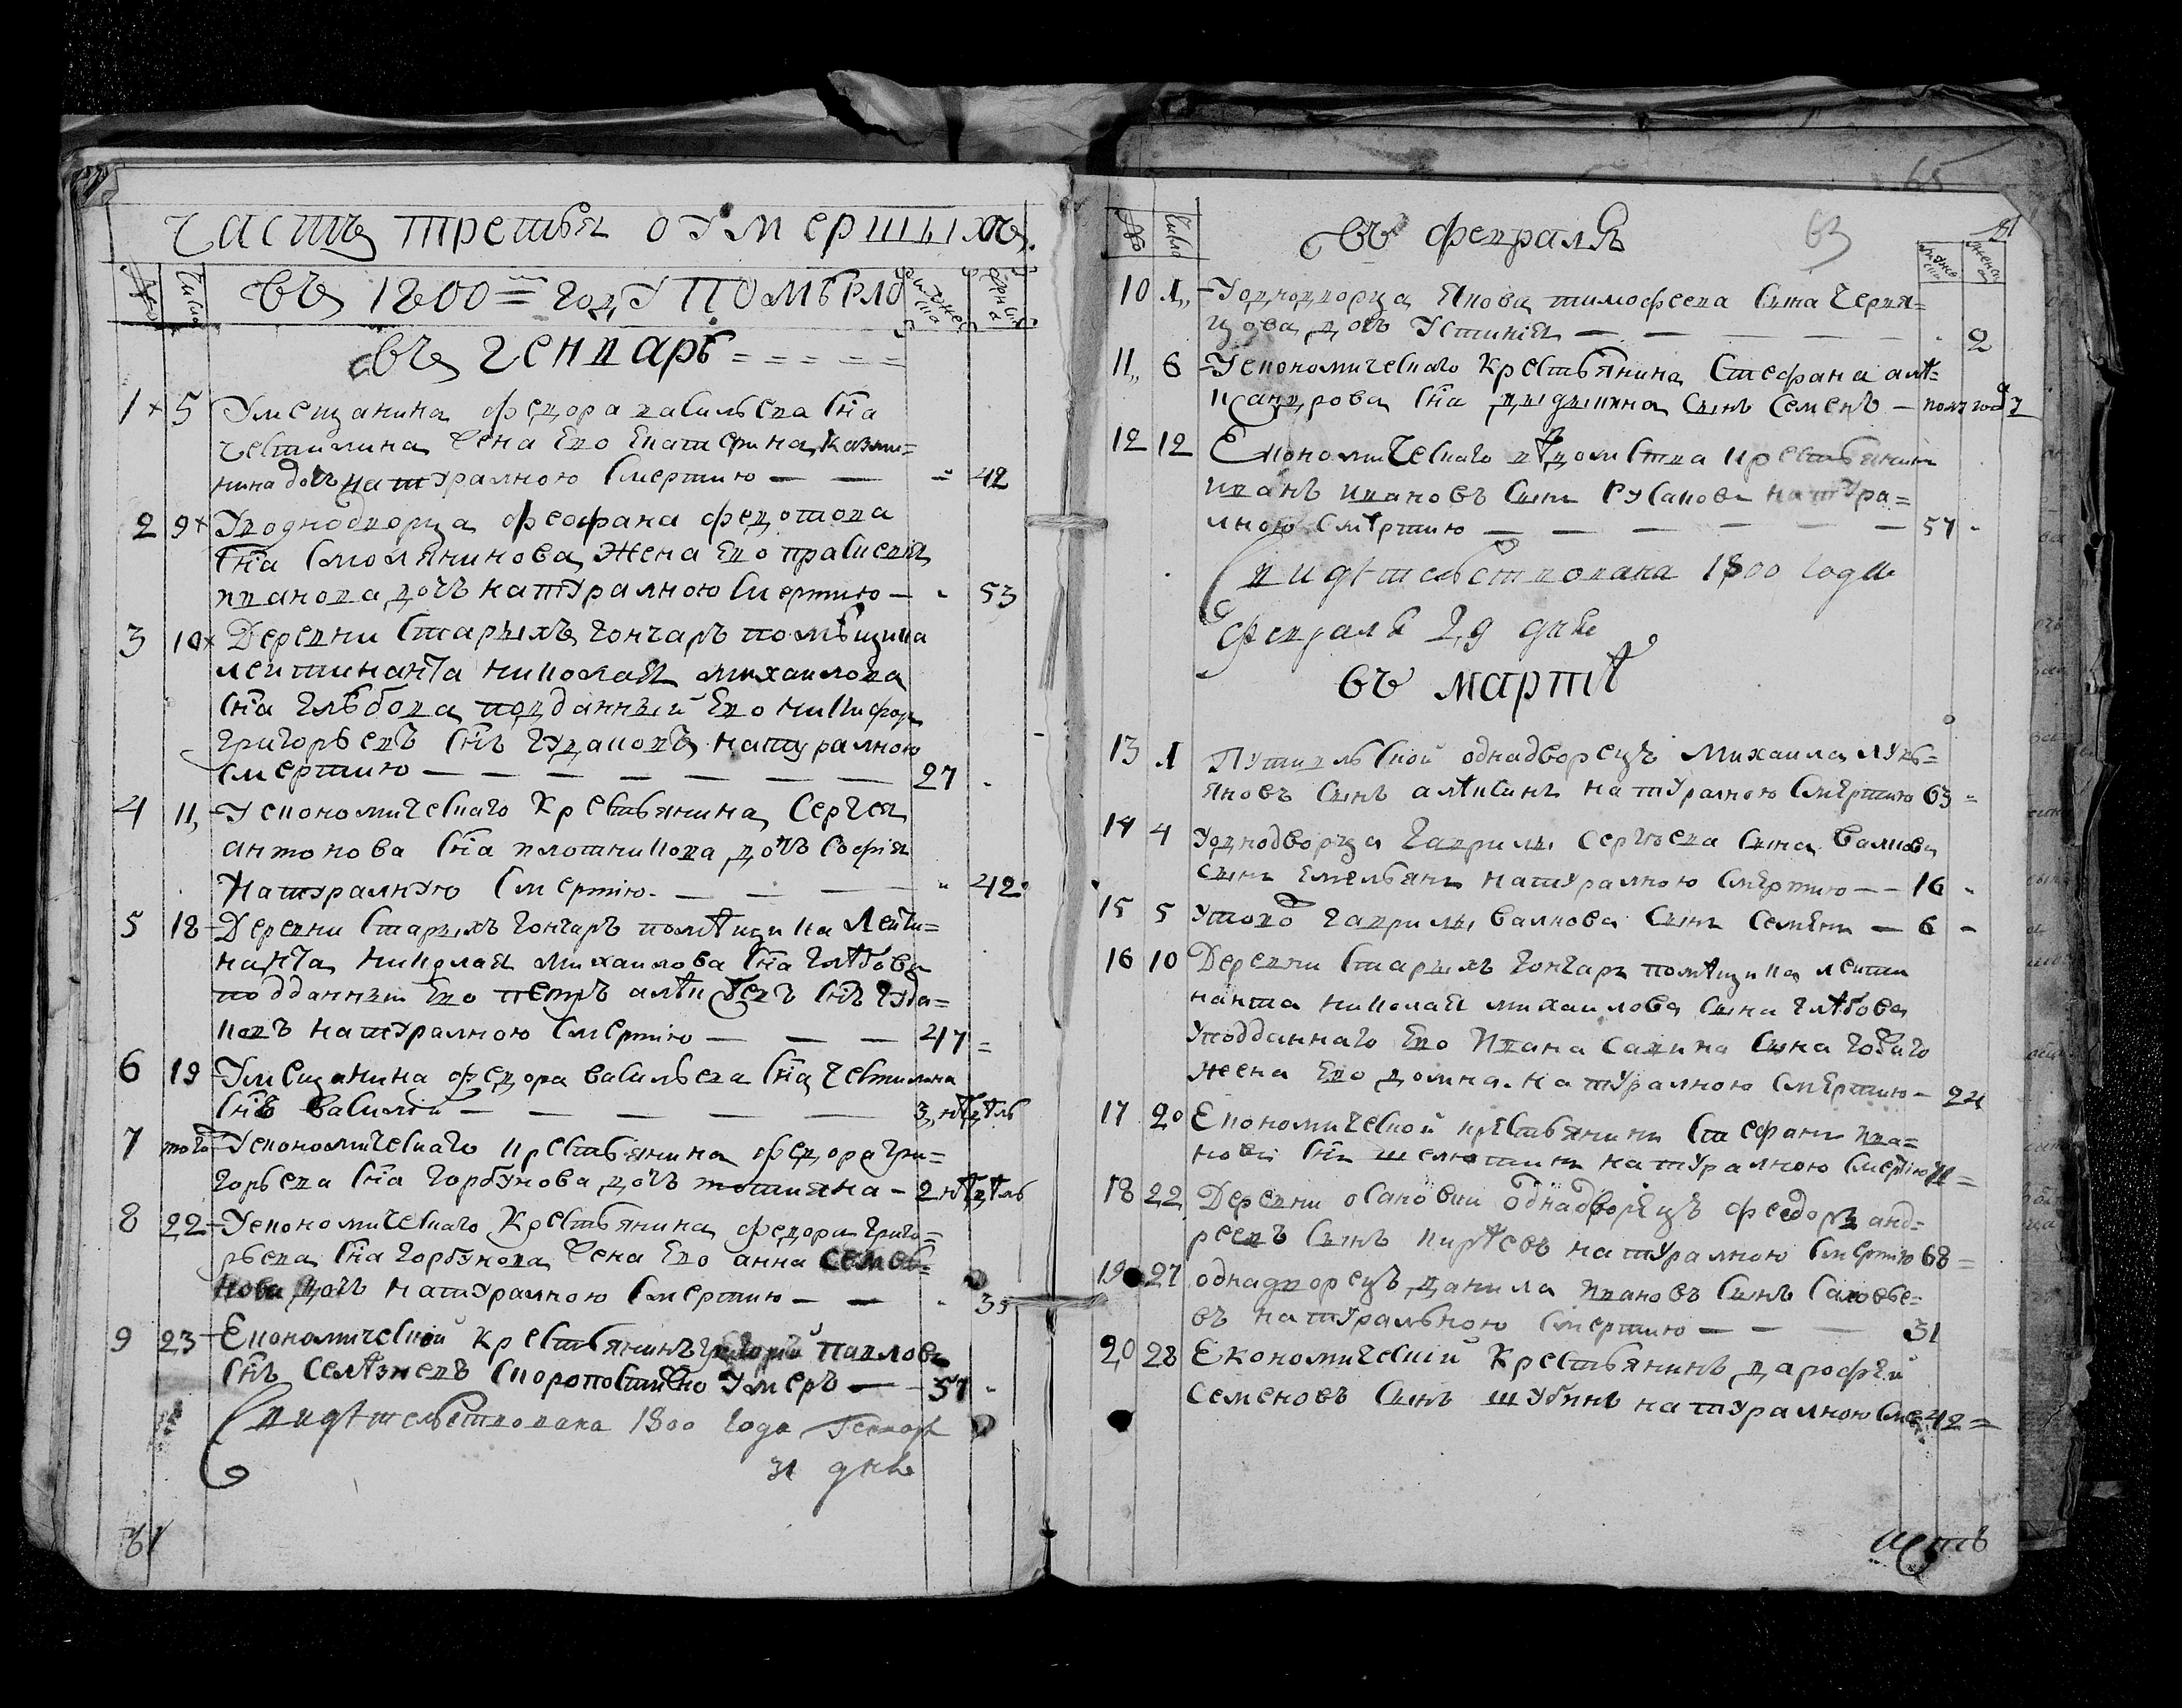 Часть третья о умершихъ.
Число
въ 1800 = году Помѣрло
въ генварѣ = = = = =
1 5 У мещанина федора васильева сна
чевтилина жена Ево Екатерина Казми=
нина дочь натуралною смертию — — 42
2 9 У однодворца феофана федотова
сна смолянинова, жена Ево
иванова дочь натуралною смертию — 53
3 10 Деревни старыхъ гончаръ помѣщика
лейтинанта николая михаилова
сна глѣбова подданный Ево никифоръ
григорьевъ снъ гудаковъ натуралною
смертию — — — — — — — 27
4 11 У економическаго крестьянина Сергея
антонова сна плотникова дочь софія
натуралную смертію — — — 42
5 18 Деревни старыхъ гончаръ помѣщика Лейти=
нанта николая михаилова сна глѣбова
подданный Ево петръ алѣксѣевъ снъ гуда=
ковъ натуралною смертію — — — 47
6 19 У мещанина федора васильева сна чевтилина
снъ василій — — — — — 3 нѣдѣль
7 того У економическаго крестьянина федора гри=
горьева сна горбунова дочь татиана — 2 нѣдѣль
8 22 У економическаго крестьянина федора григо=
рьева сна горбунова жена Ево анна семень=
нова дочь натуралною смертию — — 35
9 23 Економический крестьянинъ григорий павловъ
снъ селѣзневъ скоропостижно умеръ — 57
Свидѣтельствована 1800 года Генваря
31 дня
31
65
63
Число
въ февралѣ
10 1 У однодворца якова тимофеева сына черня=
цова дочь устинія — — — 2
11 6 У економическаго крестьянина стефана алѣ=
ксандрова сна сынъ семенъ — полъ года
12 12 Економическаго вѣдомства крестьянинъ
иванъ ивановъ сынъ русановъ натура=
лною смѣртию — — — — — — 57
Свидѣтельствована 1800 года
февраля 29 дня
въ мартѣ
13 1 Путивльской однадворецъ михаила лукь=
яновъ сынъ алѣхинъ натуралною смѣртию 63
14 4 У однодворца гаврилы сергѣева сына валкова
сынъ емельянъ натуралною смѣртию — — 16
15 5 У того гаврилы валкова сынъ семенъ — 6
16 10 Деревни старыхъ гончаръ помѣщика лейти
нанта николая михаилова сына глѣбова
у подданнаго Ево ивана савина сына
жена Ево домна натуралною смѣртию — 24
17 20 Економической крѣстьянинъ стефанъ ива=
новъ снъ натуралною смертію
18 22 Деревни однадворецъ федоръ анд=
реевъ сынъ пирѣевъ натуралною смертию 68
19 27 однадворецъ данила ивановъ сынъ саловье=
въ натуральною смертию — — — 31
20 28 Економический крестьянинъ дарофѣй
семеновъ сынъ шубинъ натуралною сме 42